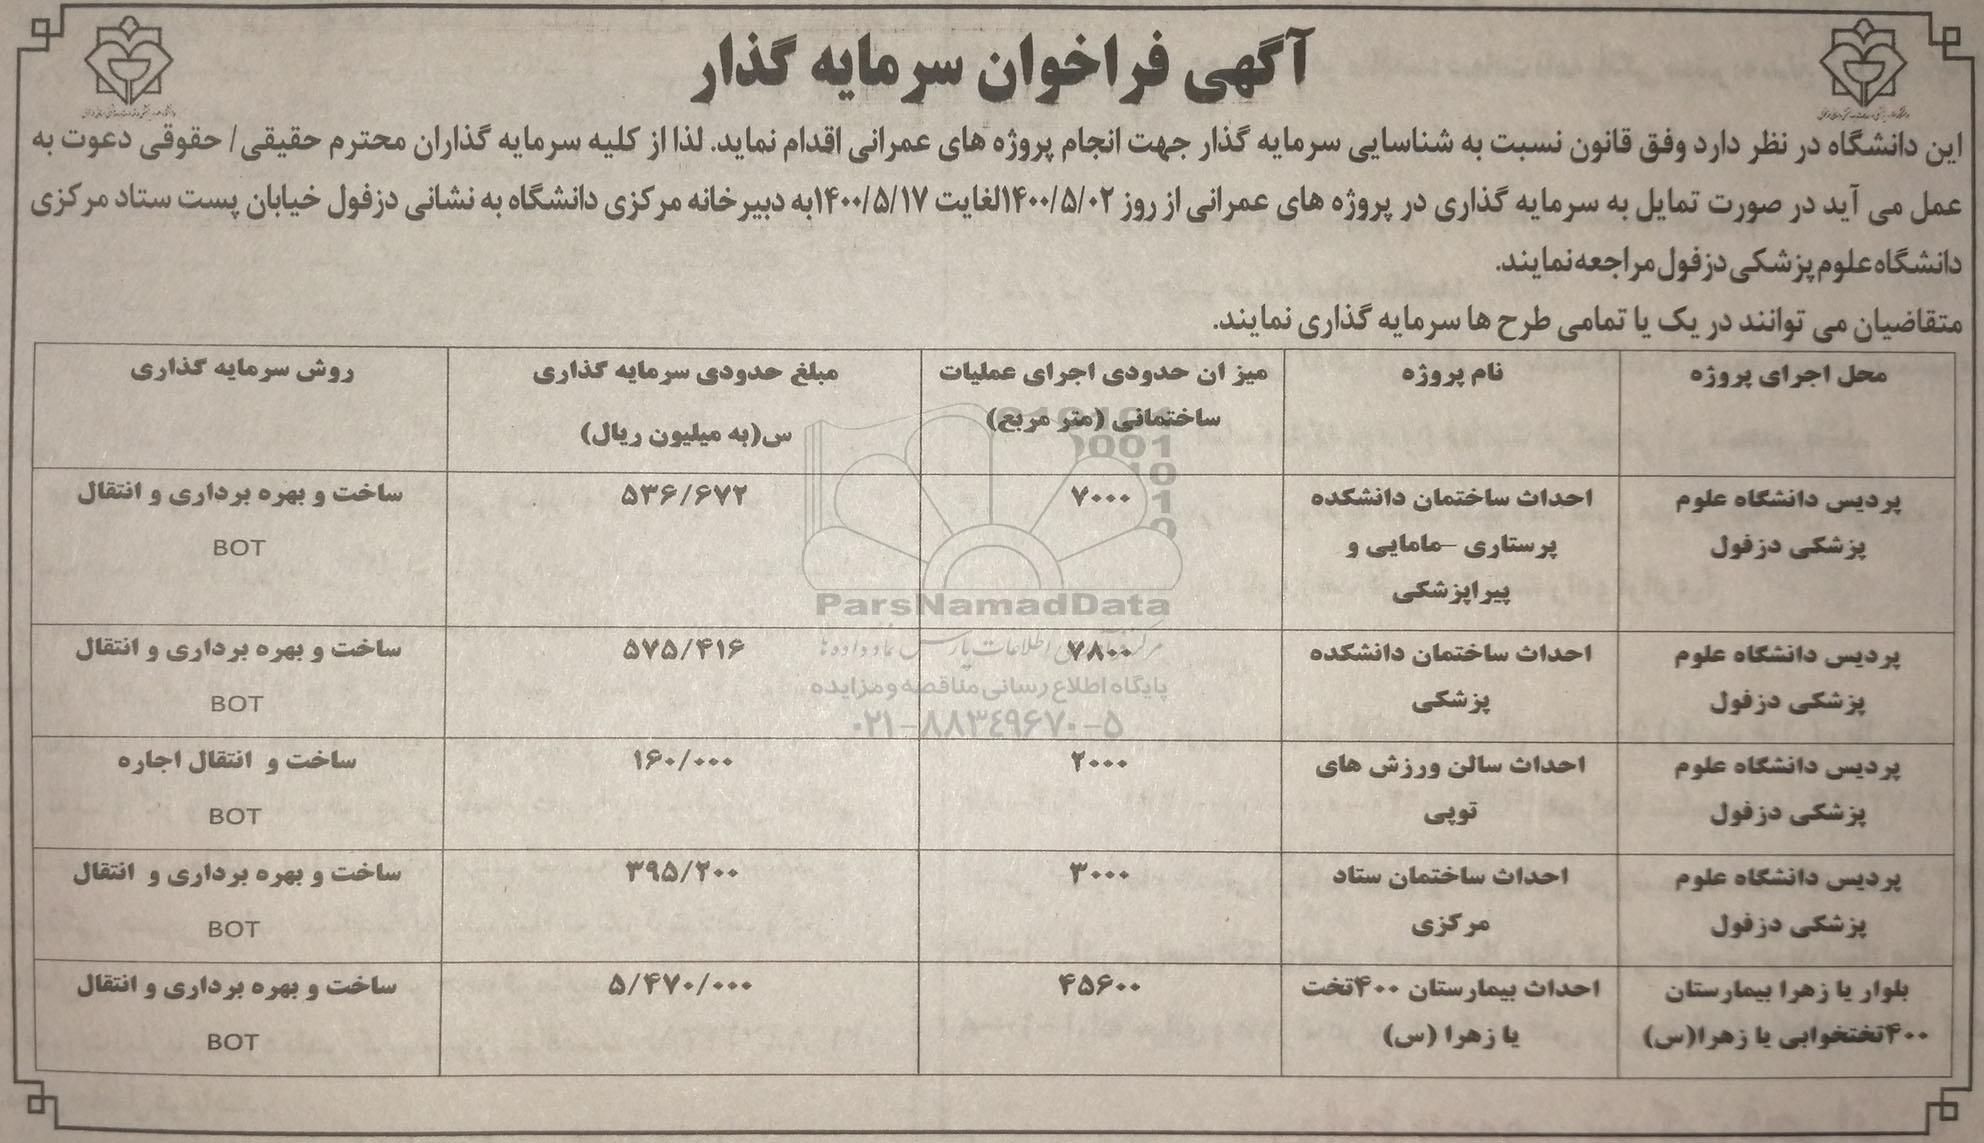 آگهی فراخوان سرمایه گذار
این دانشگاه در نظر دارد وفق قانون نسبت به شناسایی سرمایه گذار جهت انجام پروژه های عمرانی اقدام نماید. لذا از کلیه سرمایه گذاران محترم حقیقی/ حقوقی دعوت به
عمل می آید در صورت تمایل به سرمایه گذاری در پروژه های عمرانی از روز ۱۴۰۰/۵/۰۲لغایت ۱۴۰۰/۵/۱۷به دبیرخانه مرکزی دانشگاه به نشانی دزفول خیابان پست ستاد مرکزی
دانشگاه علوم پزشکی دزفول مراجعه نمایند.
متقاضیان می توانند در یک یا تمامی طرح ها سرمایه گذاری نمایند.
محل اجرای پروژه
نام پروژه
میز ان حدودی اجرای عملیات
ساختمانی (متر مربع)
مبلغ حدودی سرمایه گذاری
س(به میلیون ریال)
روش سرمایه گذاری
پردیس دانشگاه علوم
پزشکی دزفول
احداث ساختمان دانشکده
پرستاری –مامایی و
پیراپزشکی
۷۰۰۰
۵۳۶/۶۷۲
ساخت و بهره برداری و انتقال
BOT
پردیس دانشگاه علوم
پزشکی دزفول
احداث ساختمان دانشکده
پزشکی
۷۸۰۰
۵۷۵/۴۱۶
ساخت و بهره برداری و انتقال
BOT
پردیس دانشگاه علوم
پزشکی دزفول
احداث سالن ورزش های
توپی
۲۰۰۰
۱۶۰/۰۰۰
ساخت و انتقال اجاره
BOT
پردیس دانشگاه علوم
پزشکی دزفول
احداث ساختمان ستاد
مرکزی
۳۰۰۰
۳۹۵/۲۰۰
ساخت و بهره برداری و انتقال
BOT
بلوار یا زهرا بیمارستان
۴۰۰تختخوابی یا زهرا(س)
احداث بیمارستان ۴۰۰تخت
یا زهرا (س)
۴۵۶۰۰
۵/۴۷۰/۰۰۰
ساخت و بهره برداری و انتقال
BOT
ParsNamadData
پایگاه اطلاع رسانی مناقصه و مزایده
۰۲۱-۸۸۳۴۹۶۷۰-۵